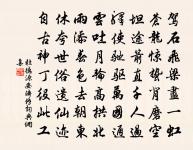 駕石飛梁盡一虹
蒼龍驚蟄背磨空
坦途箭直千人過
驛使馳驅萬國通
雲吐月輪高拱北
雨添春水去朝東
休夸世俗遺仙迹
自古神丁役此工
杜德源安濟橋詩詞典網
集